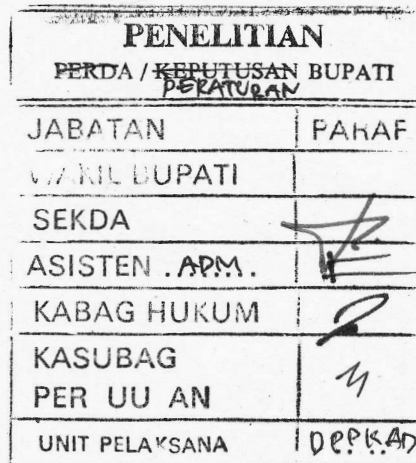 PENELITIAN
PERDA / KEPUTUSAN BUPATI
PERATURAN
JABATAN PARAF
WAKIL BUPATI
SEKDA
ASISTEN . ADM .
KABAG HUKUM
KASUBAG
PER UU AN
UNIT PELAKSANA DPPKAD